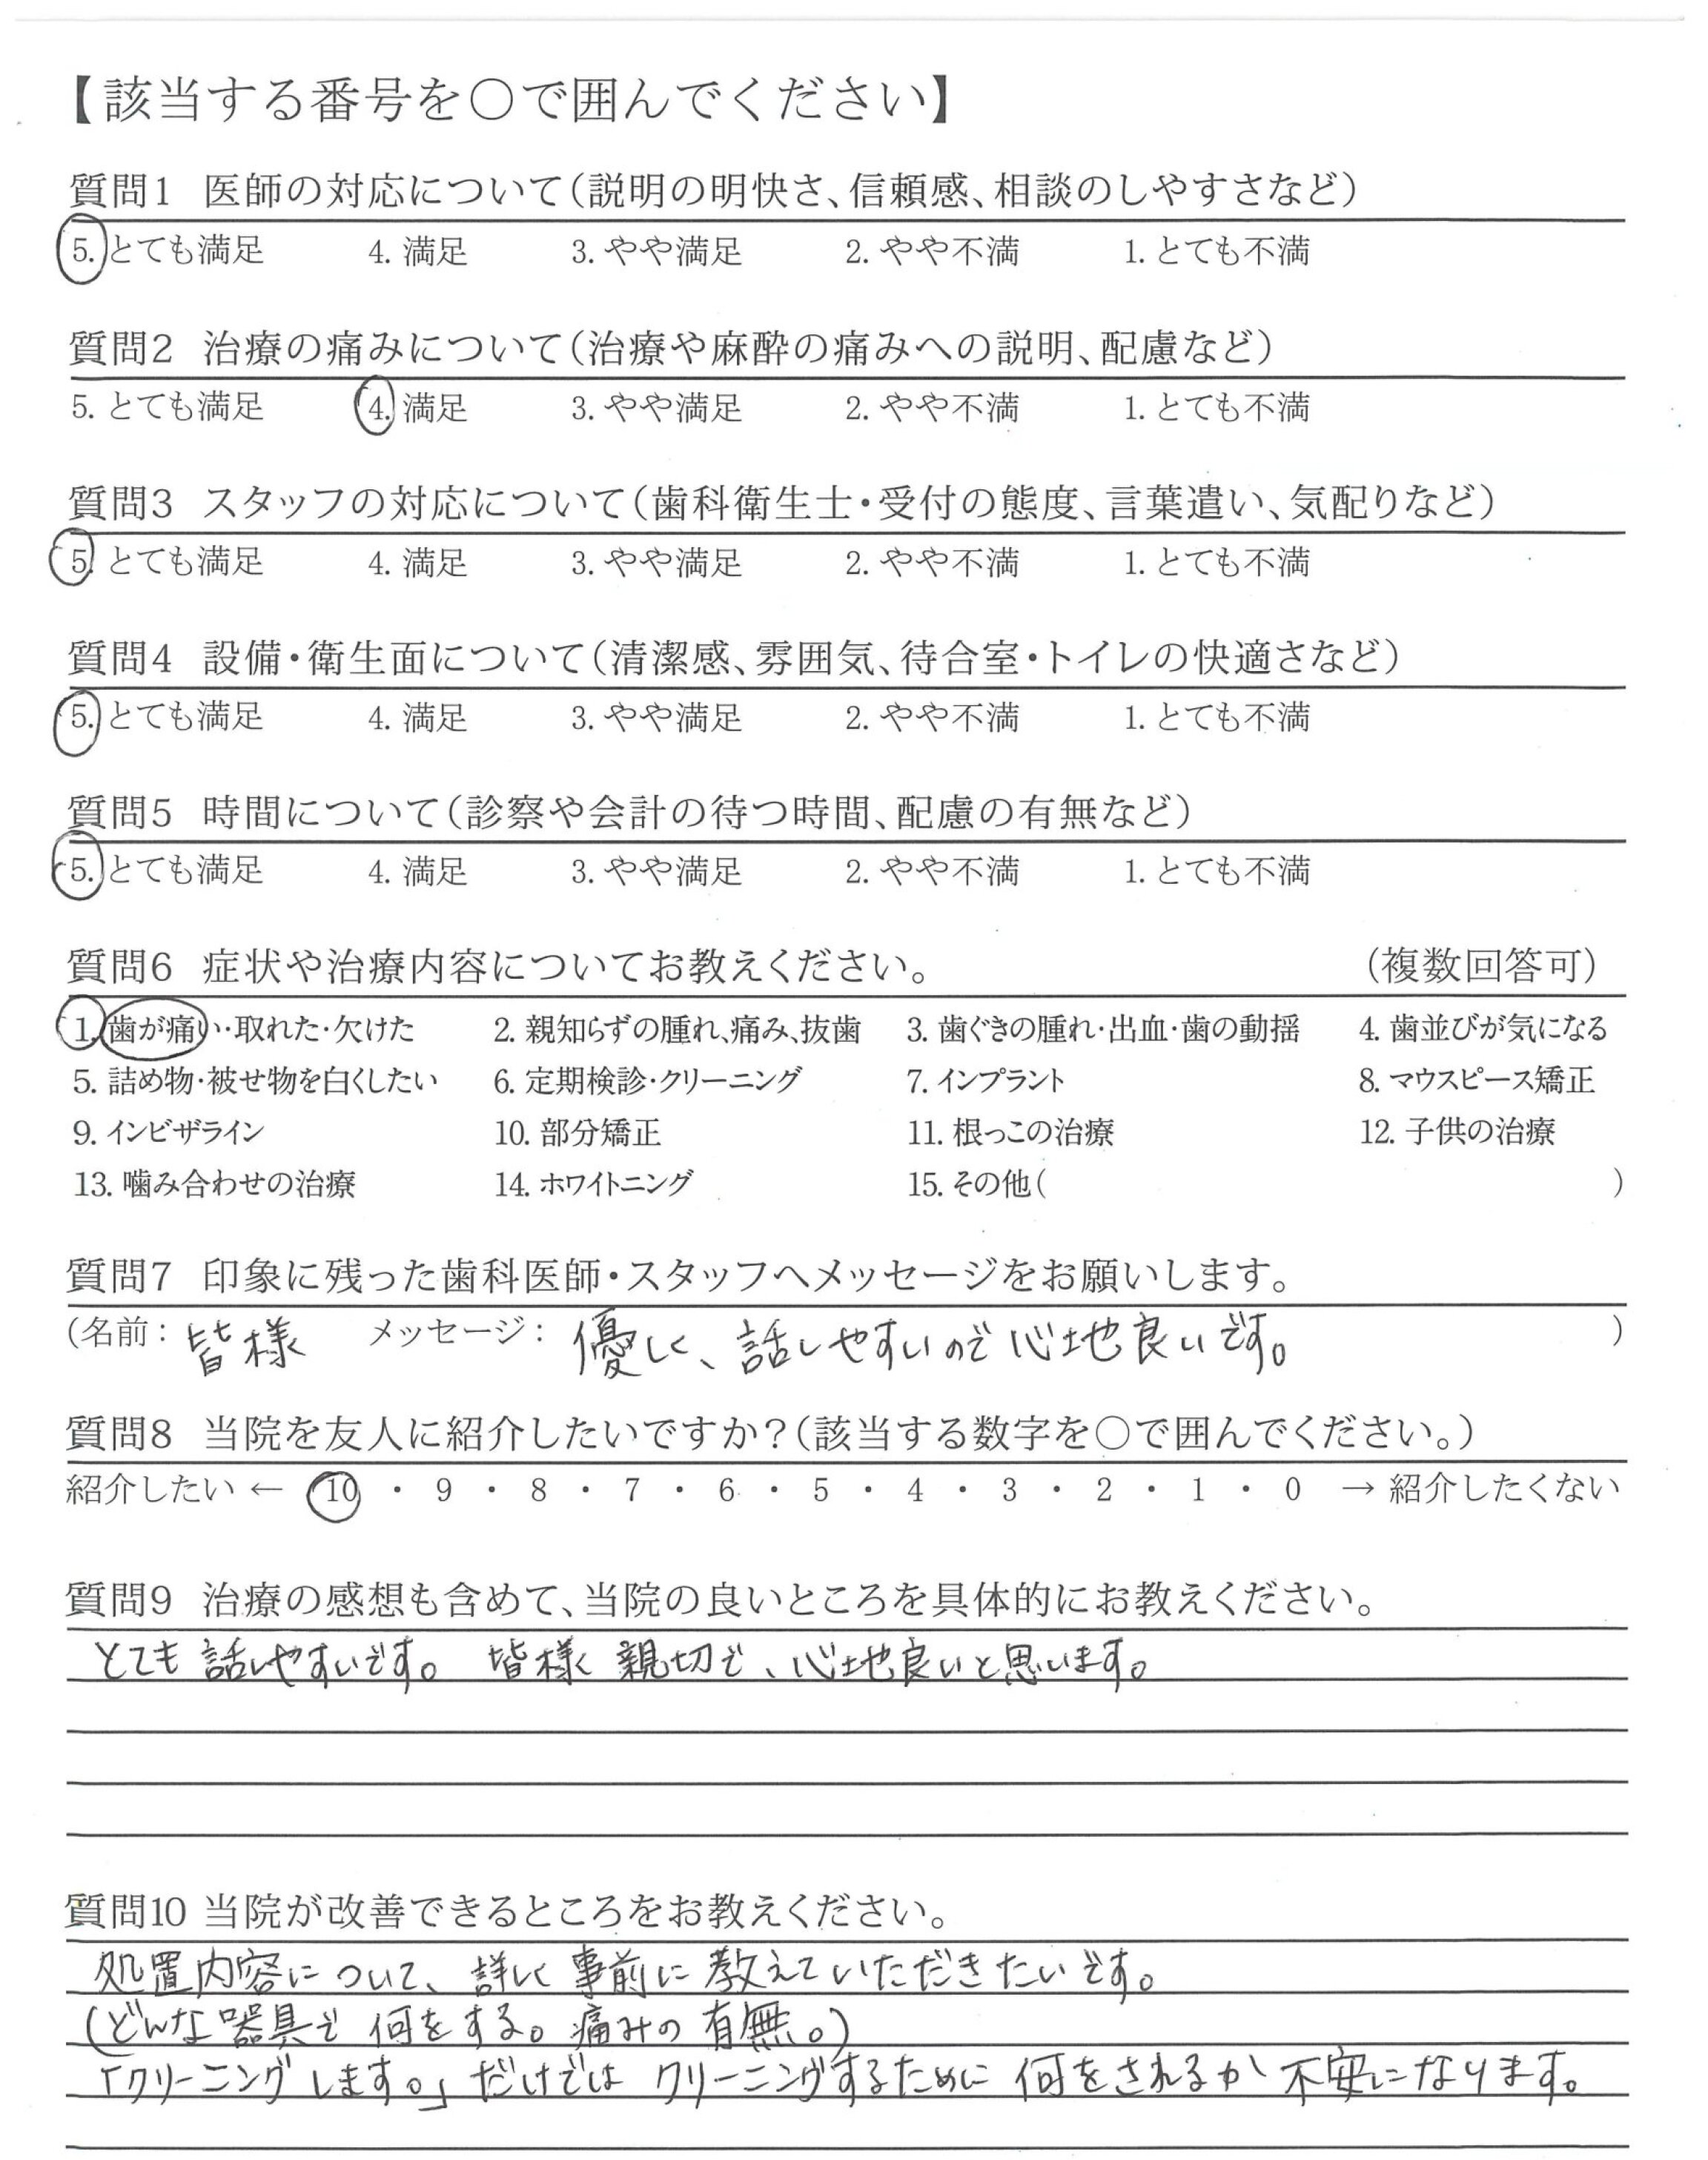 【該当する番号を〇で囲んでください】
質問1 医師の対応について(説明の明快さ、信頼感、相談のしやすさなど)
5. とても満足 4. 満足 3. やや満足 2. やや不満 1. とても不満
質問2 治療の痛みについて(治療や麻酔の痛みへの説明、配慮など)
5. とても満足 4. 満足 3. やや満足 2. やや不満 1. とても不満
質問3 スタッフの対応について(歯科衛生士・受付の態度、言葉遣い、気配りなど)
5. とても満足 4. 満足 3. やや満足 2. やや不満 1. とても不満
質問4 設備・衛生面について(清潔感、雰囲気、待合室・トイレの快適さなど)
5. とても満足 4. 満足 3. やや満足 2. やや不満 1. とても不満
質問5 時間について(診察や会計の待つ時間、配慮の有無など)
5. とても満足 4. 満足 3. やや満足 2. やや不満 1. とても不満
質問6 症状や治療内容についてお教えください。 (複数回答可)
1. 歯が痛い・取れた・欠けた 2. 親知らずの腫れ、痛み、抜歯 3. 歯ぐきの腫れ・出血・歯の動揺 4. 歯並びが気になる
5. 詰め物・被せ物を白くしたい 6. 定期検診・クリーニング 7. インプラント 8. マウスピース矯正
9. インビザライン 10. 部分矯正 11. 根っこの治療 12. 子供の治療
13. 噛み合わせの治療 14. ホワイトニング 15. その他( )
質問7 印象に残った歯科医師・スタッフへメッセージをお願いします。
(名前: 皆様 メッセージ: 優しく、話しやすいので心地良いです。 )
質問8 当院を友人に紹介したいですか?(該当する数字を〇で囲んでください。)
紹介したい ← 10 ・ 9 ・ 8 ・ 7 ・ 6 ・ 5 ・ 4 ・ 3 ・ 2 ・ 1 ・ 0 → 紹介したくない
質問9 治療の感想も含めて、当院の良いところを具体的にお教えください。
とても話しやすいです。 皆様 親切で、心地良いと思います。
質問10 当院が改善できるところをお教えください。
処置内容について、詳しく事前に教えていただきたいです。
(どんな器具で何をする。痛みの有無。)
「クリーニングします。」だけではクリーニングするために何をされるか不安になります。